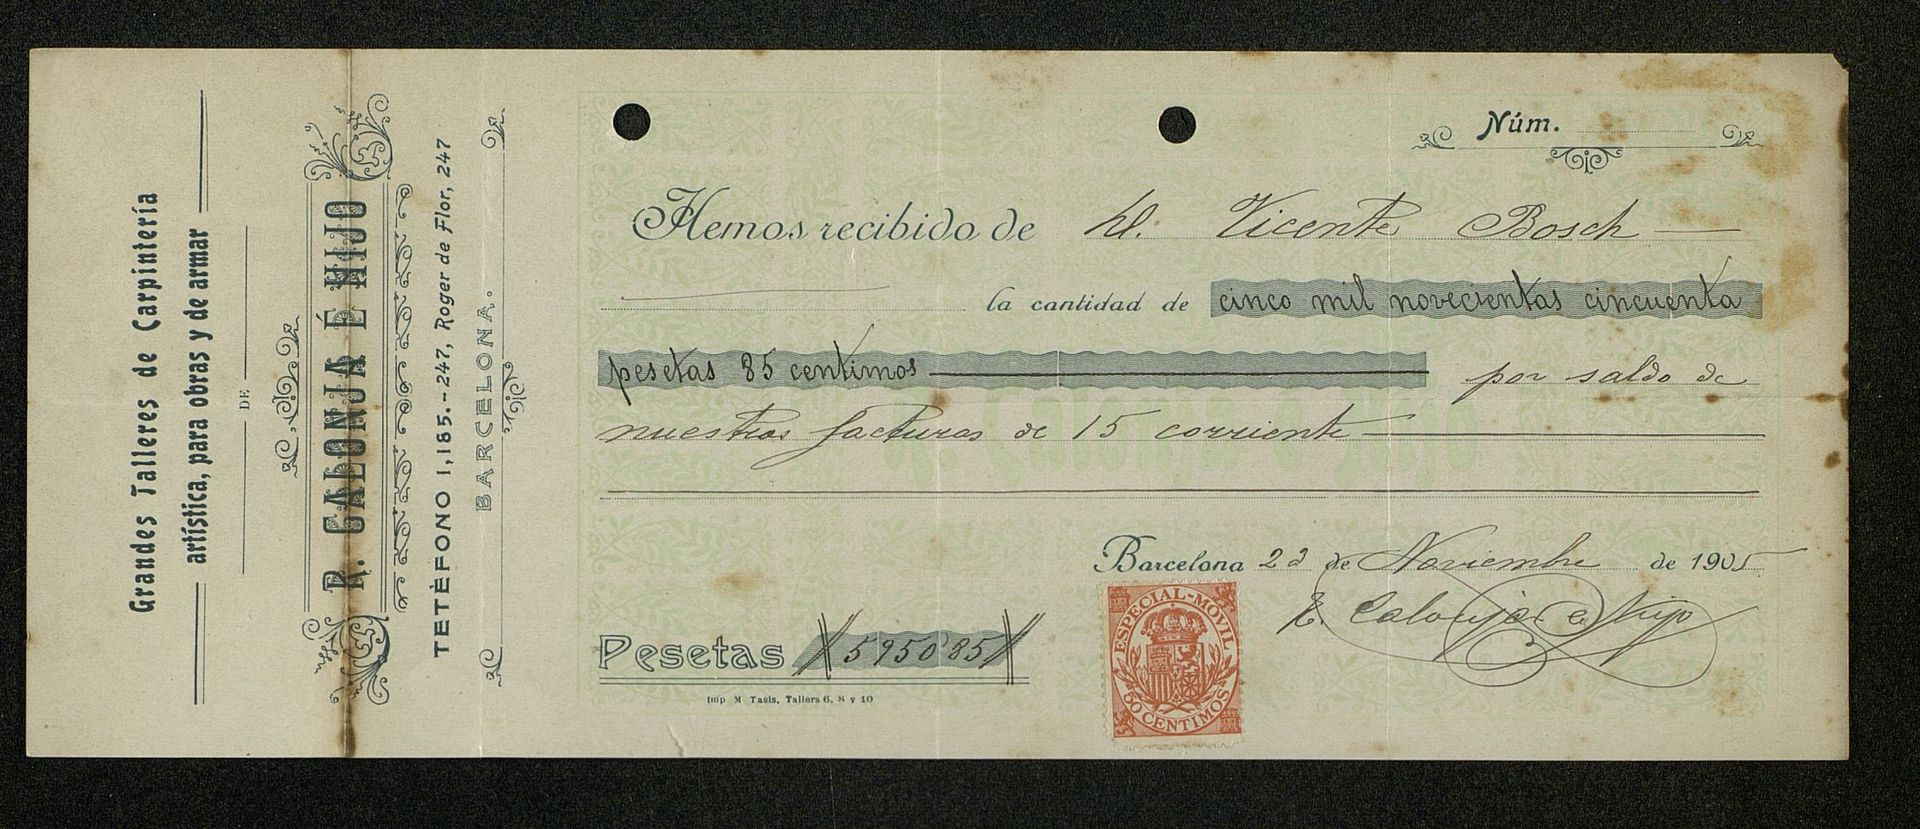 Grandes Talleres de Carpintería
artística, para obras y de armar
DE
R. CALONJA É HIJO
TETÈFONO 1,185.-247, Roger de Flor, 247
BARCELONA.
Núm.
Hemos recibido de D. Vicente Bosch
la cantidad de cinco mil novecientas cincuenta
pesetas 85 centimos por saldo de
nuestras facturas de 15 corriente
R. Calonja é Hijo
Barcelona 23 de Noviembre de 1905
R. Calonja é Hijo
Pesetas 5950'85
ESPECIAL-MOVIL
50 CENTIMOS
Imp M Tasis, Tallers 6, 8 y 10